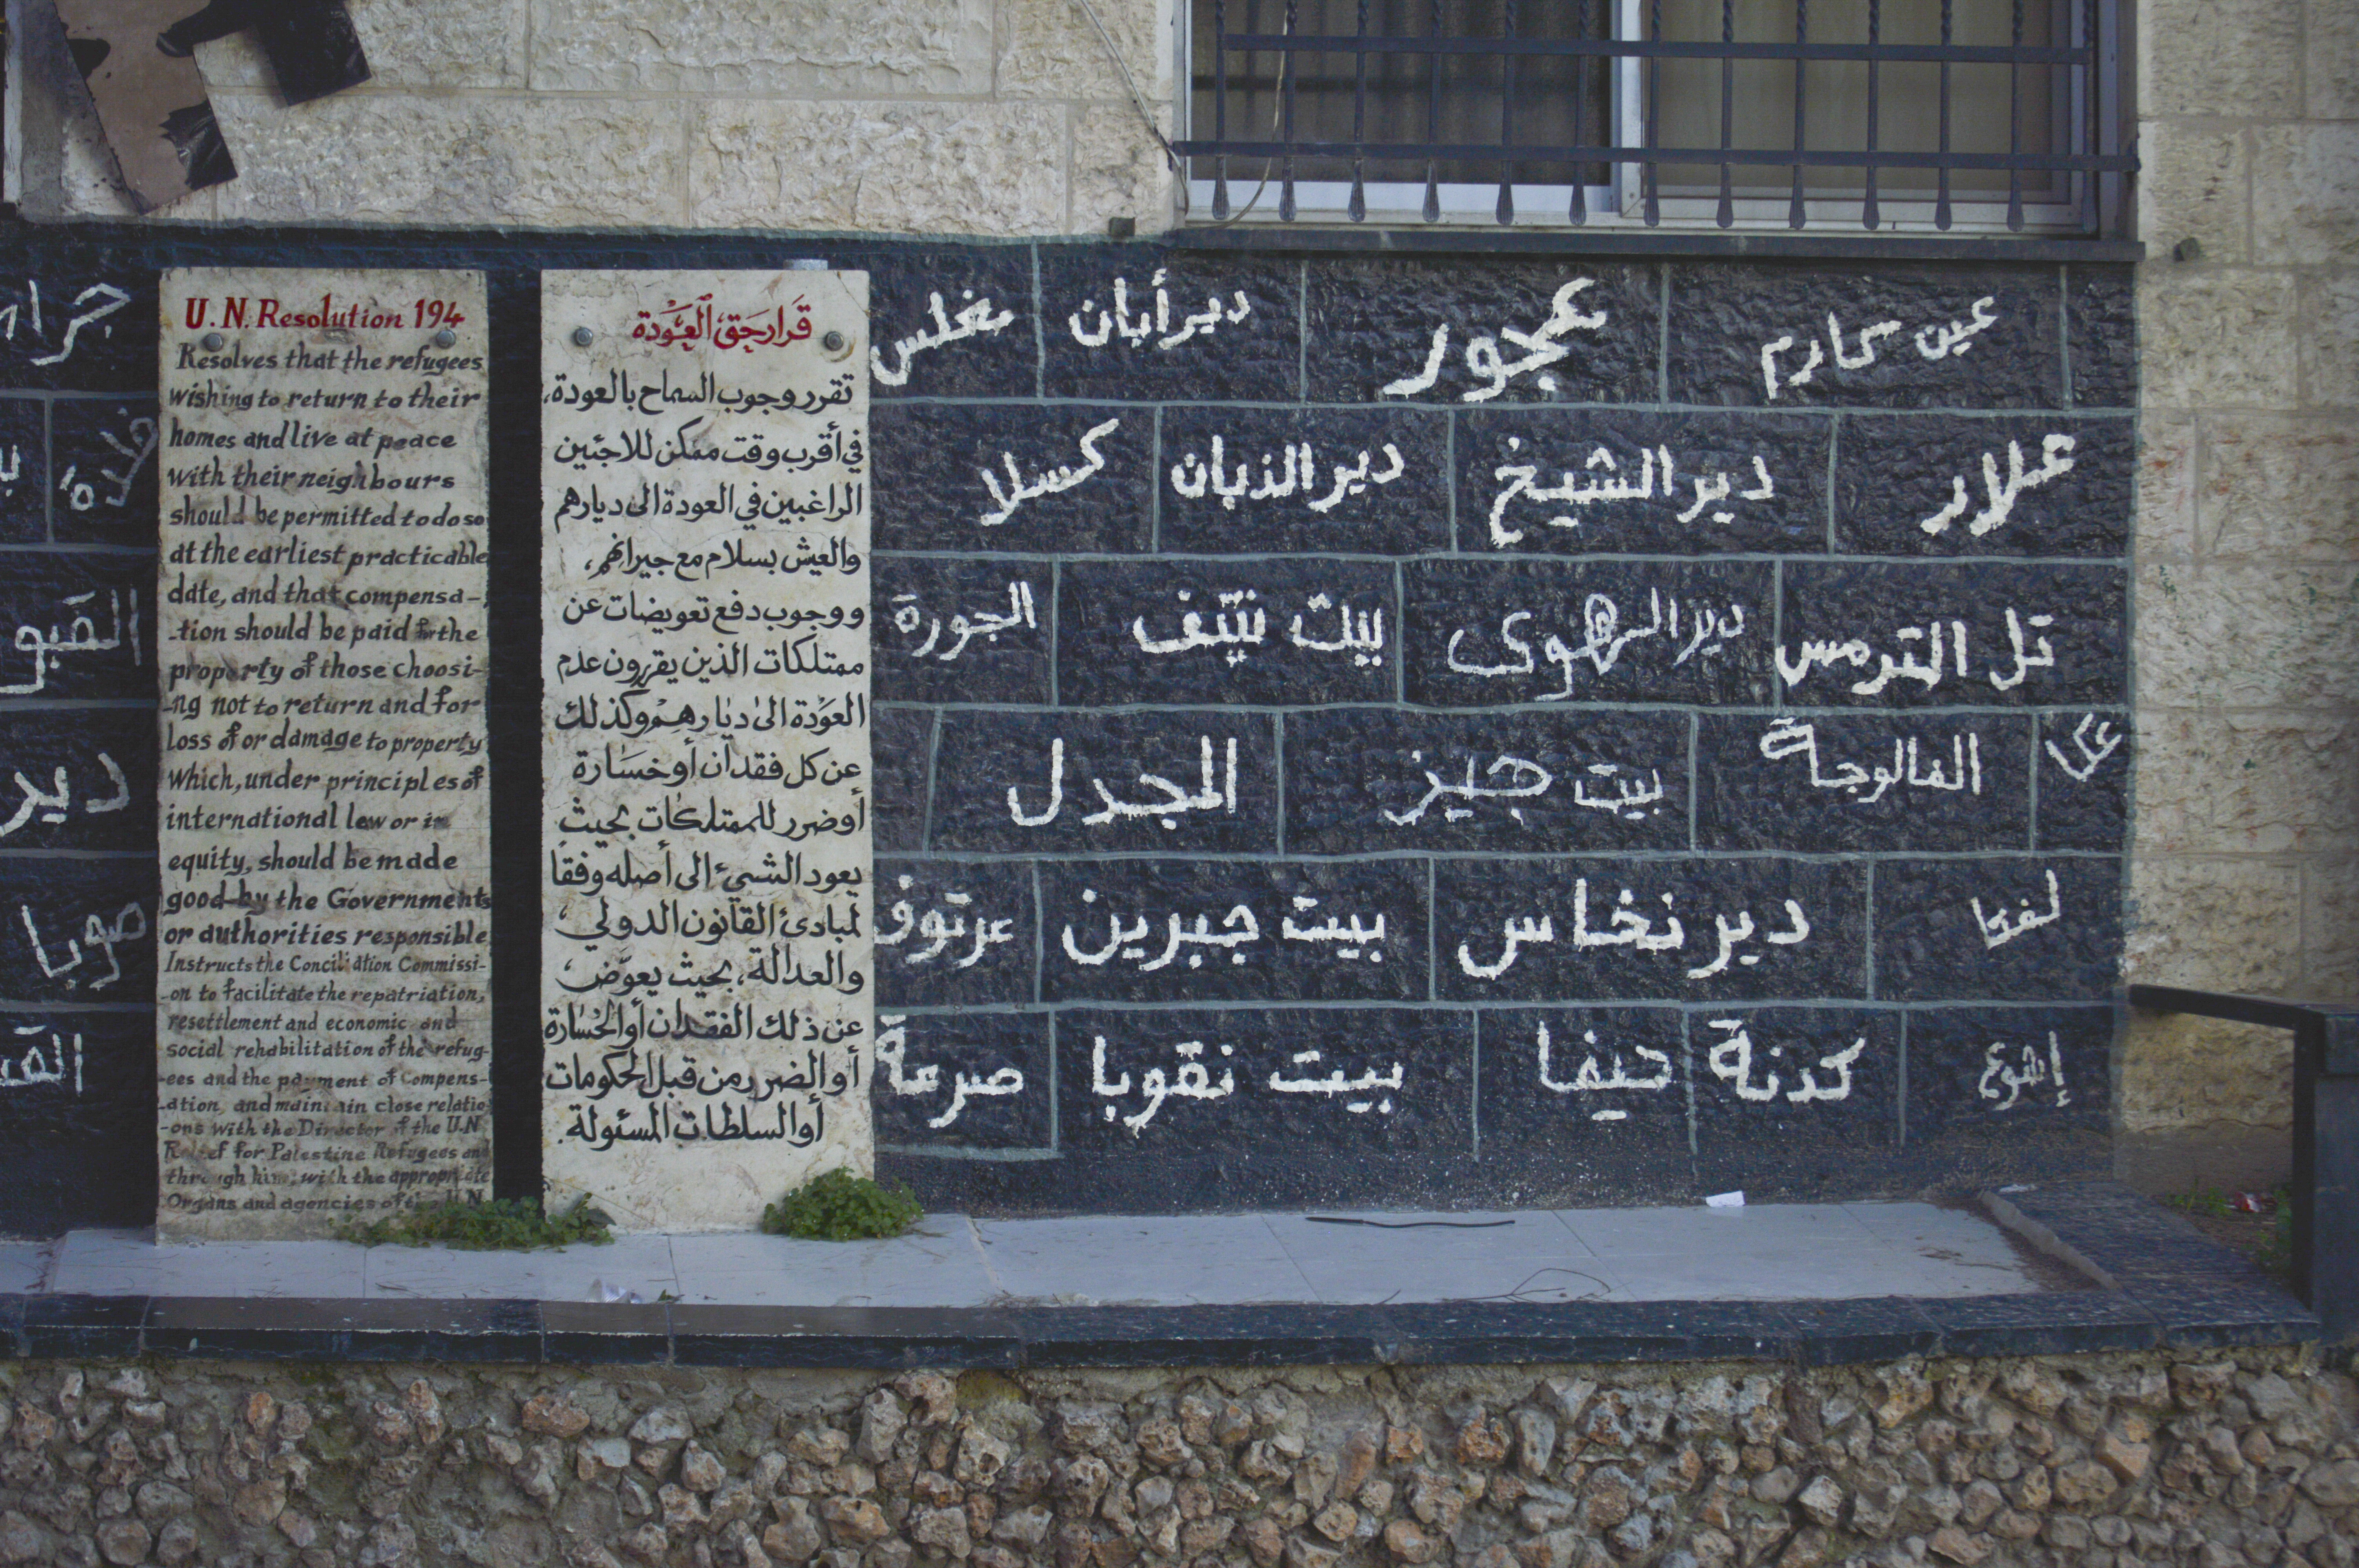 U.N. Resolution 194
Resolves that the refugees
wishing to return to their
homes and live at peace
with their neighbours
should be permitted to do so
at the earliest practicable
date, and that compensa-
-tion should be paid for the
property of those choosi-
-ng not to return and for
loss of or damage to property
which, under principles of
international law or in
equity, should be made
good by the Governments
or authorities responsible
Instructs the Conciliation Commissi-
-on to facilitate the repatriation,
resettlement and economic and
social rehabilitation of the refug-
-ees and the payment of Compens-
-ation, and maintain close relatio
-ons with the Director of the U.N
Relief for Palestine Refugees and
through him, with the appropriate
Organs and agencies of the U.N
قَرار حَق العَوْدة
تقرر وجوب السماح بالعودة،
في أقرب وقت ممكن للاجئين
الراغبين في العودة الى ديارهم
والعيش بسلام مع جيرانهم،
ووجوب دفع تعويضات عن
ممتلكات الذين يقررون عدم
العَوْدة الى ديارهم وكذلك
عن كل فقدان أو خسَارة
أو ضرر للممتلكات بحيث
يعود الشيء الى أصله وفقا
لمبادئ القانون الدولي،
والعدالة، بحيث يعوّض،
عن ذلك الفقدان أو الخسَارة
أو الضرر من قبل الحكومات
أو السلطات المسئولة.
عين كارم
عجور
دير أبان
مغلس
علار
دير الشيخ
دير الذبان
كسلا
تل الترمس
دير الهوى
بيت نتيف
الجورة
عكا
الفالوجة
بيت جيز
المجدل
لفتا
دير نخاس
بيت جبرين
عرتوف
إشوع
كدنة
حيفا
بيت نقوبا
صرعة
القبو
دير
صوبا